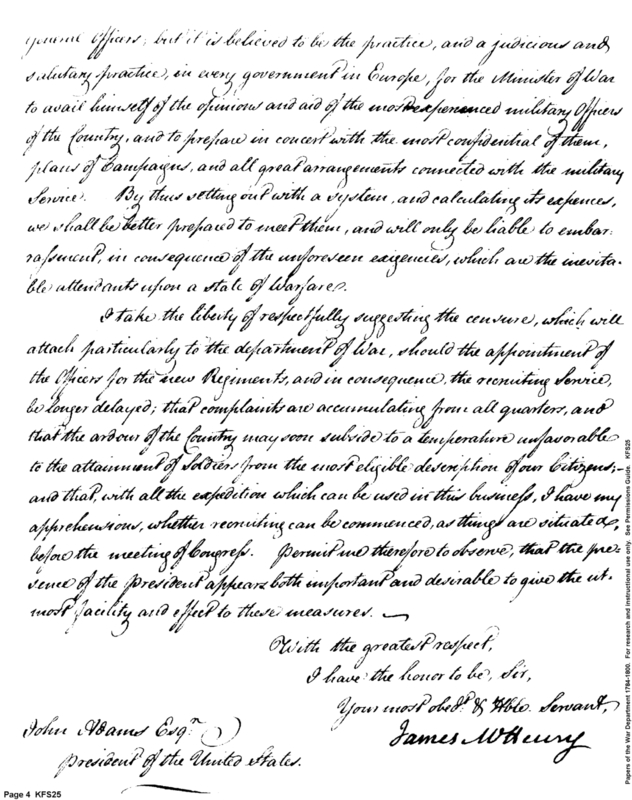 general Officers; but it is believed to be the practice, and a judicious and
salutary practice, in every government in Europe, for the Minister of War
to avail himself of the opinions and aid of the most experienced military Officers
of the Country, and to prepare in concert with the most confidential of them,
plans of Campaigns, and all great arrangements connected with the military
Service. By thus setting out with a system, and calculating its expences,
we shall be better prepared to meet them, and will only be liable to embar-
rassment, in consequence of the unforeseen exigencies, which are the inevita-
ble attendants upon a state of Warfare.
I take the liberty of respectfully suggesting the censure, which will
attach particularly to the department of War, should the appointment of
the Officers for the new Regiments, and in consequence, the recruiting Service,
be longer delayed; that complaints are accumulating from all quarters, and
that the ardour of the Country may soon subside to a temperature unfavorable
to the attainment of Soldiers from the most eligible description of our Citizens;-
and that, with all the expedition which can be used in this business, I have my
apprehensions, whether recruiting can be commenced, as things are situated,
before the meeting of Congress. Permit me therefore to observe, that the pre-
sence of the President appears both important and desirable to give the ut-
most facility and effect to these measures. —
With the greatest respect,
I have the honor to be, Sir,
Your most obedt. & Hble. Servant,
James McHenry
John Adams Esqr.
President of the United States.
Page 4 KFS25
Papers of the War Department 1784-1800. For research and instructional use only. See Permissions Guide. KFS25